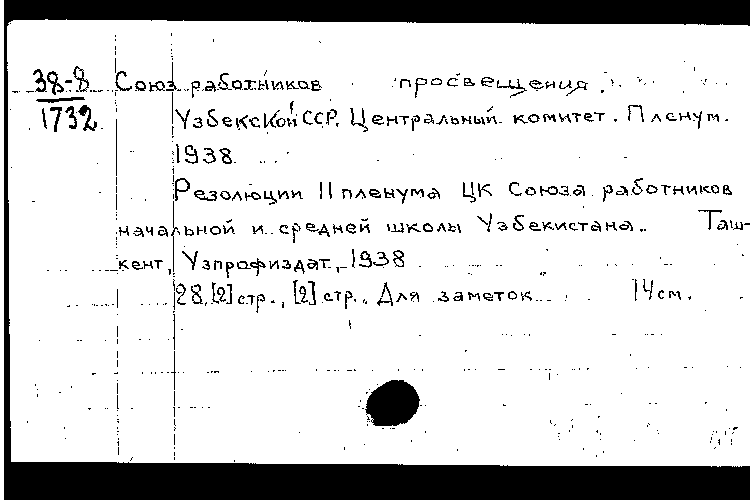 38-8 Союз работников просвещения
1732 Узбекской ССР. Центральный комитет. Пленум.
1938
Резолюции II пленума ЦК Союза работников
начальной и средней школы Узбекистана. Таш-
кент, Узпрофиздат, 1938
28,[2] стр., [2] стр. Для заметок 14 см.